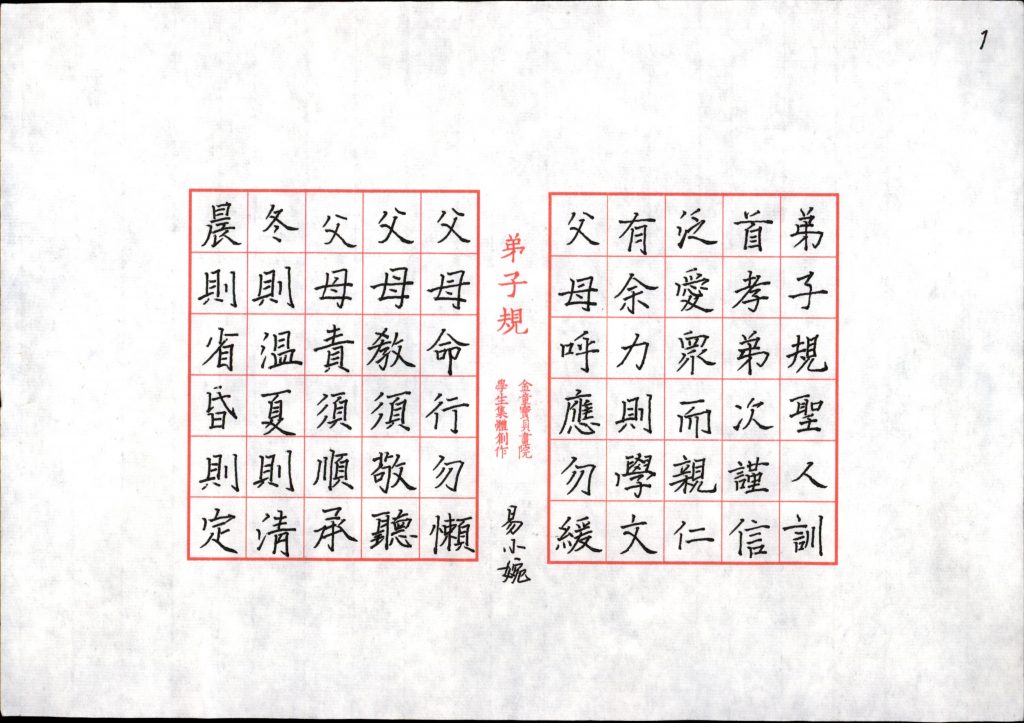 1
弟子規聖人訓
首孝弟次謹信
泛愛眾而親仁
有余力則學文
父母呼應勿緩
弟子規
金童寶貝書院
學生集體創作
易小婉
父母命行勿懶
父母教須敬聽
父母責須順承
冬則温夏則清
晨則省昏則定